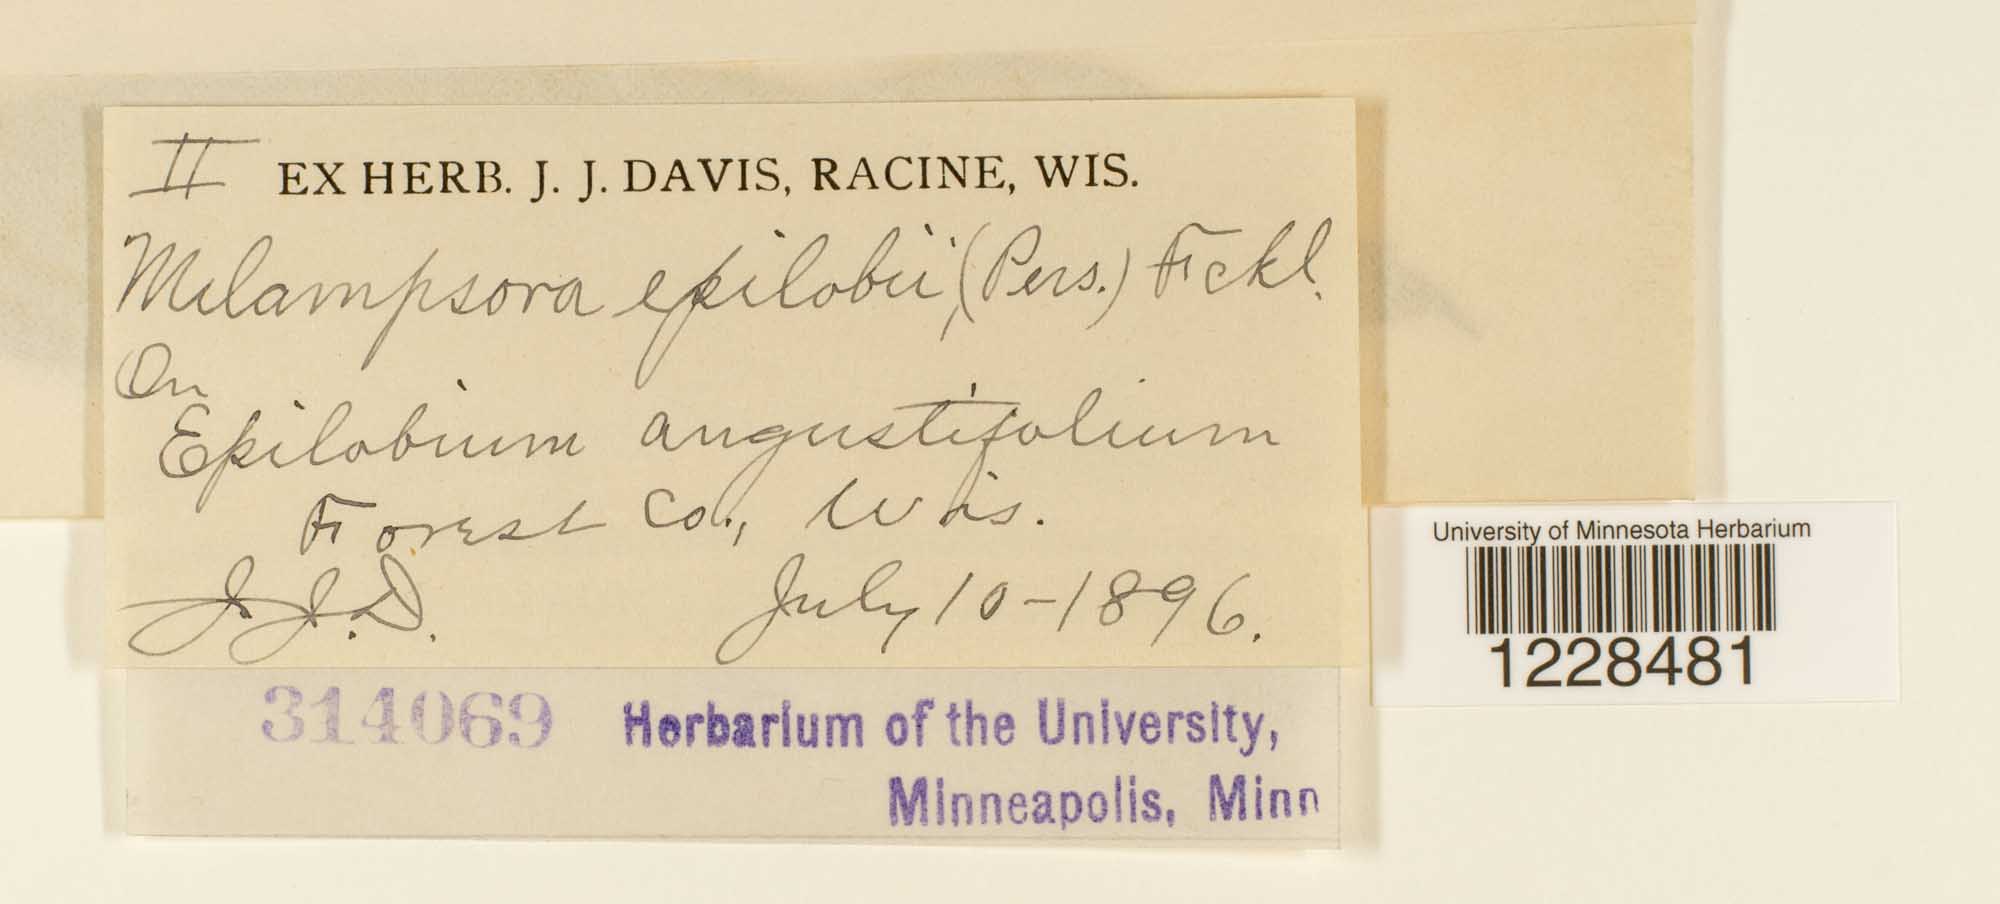 II EX HERB. J. J. DAVIS, RACINE, WIS.
Melampsora epilobii, (Pers.) Fckl.
On
Epilobium angustifolium
Forest Co., Wis.
J. J. D. July 10-1896.
314069 Herbarium of the University,
Minneapolis, Minn
University of Minnesota Herbarium
1228481